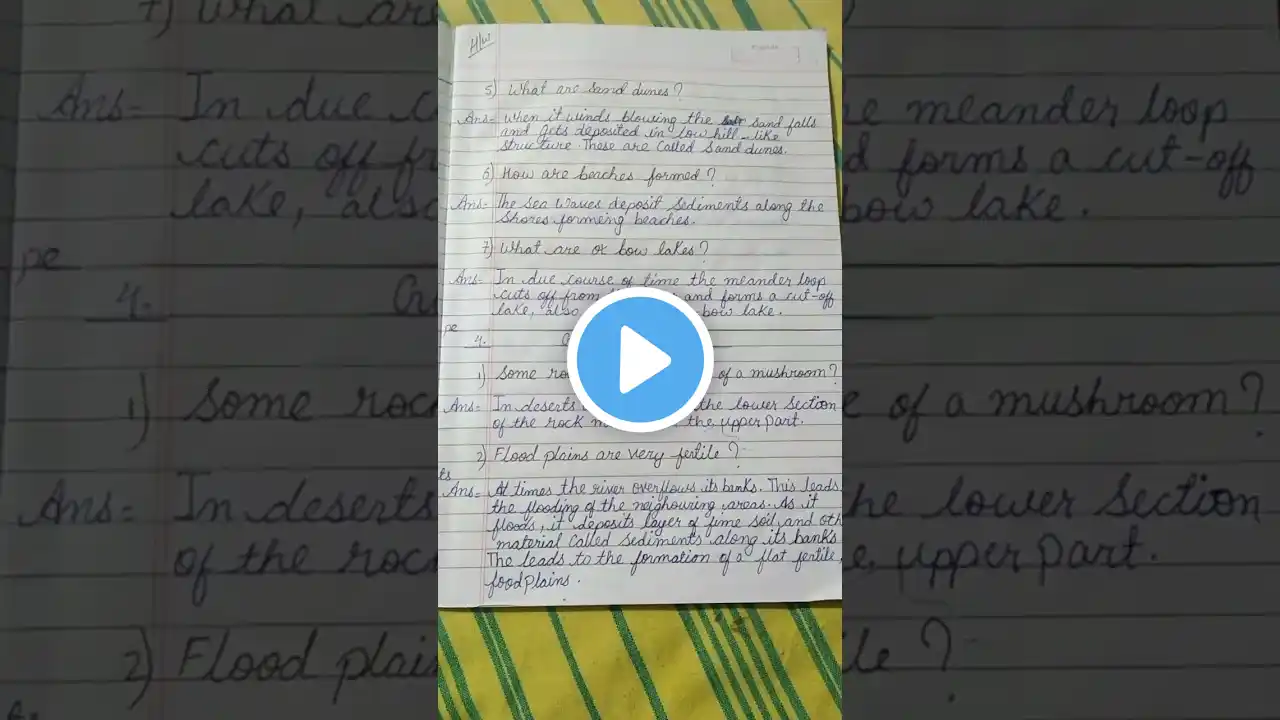 H/W
5) What are sand dunes?
Ans- when it winds blowing the sand falls
and gets deposited in low hill-like
structure. These are called sand dunes.
6) How are beaches formed?
Ans- The sea waves deposit sediments along the
shores forming beaches.
7) What are ox bow lakes?
Ans- In due course of time the meander loop
cuts off from and forms a cut-off
lake, also bow lake.
4.
1) Some of a mushroom?
Ans- In deserts the lower section
of the rock the, upper part.
2) Flood plains are very fertile?
Ans- At times the river overflows its banks. This leads
the flooding of the neighouring areas. As it
floods, it deposits layer of fime soil, and oth
material called sediments along its banks
The leads to the formation of a flat fertile,
foodplains.